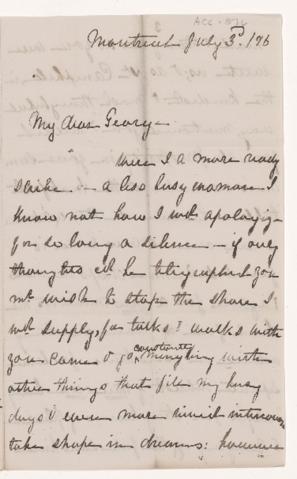 Montreal July 3d. /76
My dear George
Were I a more ready
scribe - a less busy woman I
know not how I wd. apologize
for so long a silence - if only
thoughts cd. be telegraphed you
mt. wish to stop the share I
wd. supply, for talks & walks with
you come & go constantly mingling with
other things that fill my busy
days & even more vivid intercourse
take shape in dreams: however